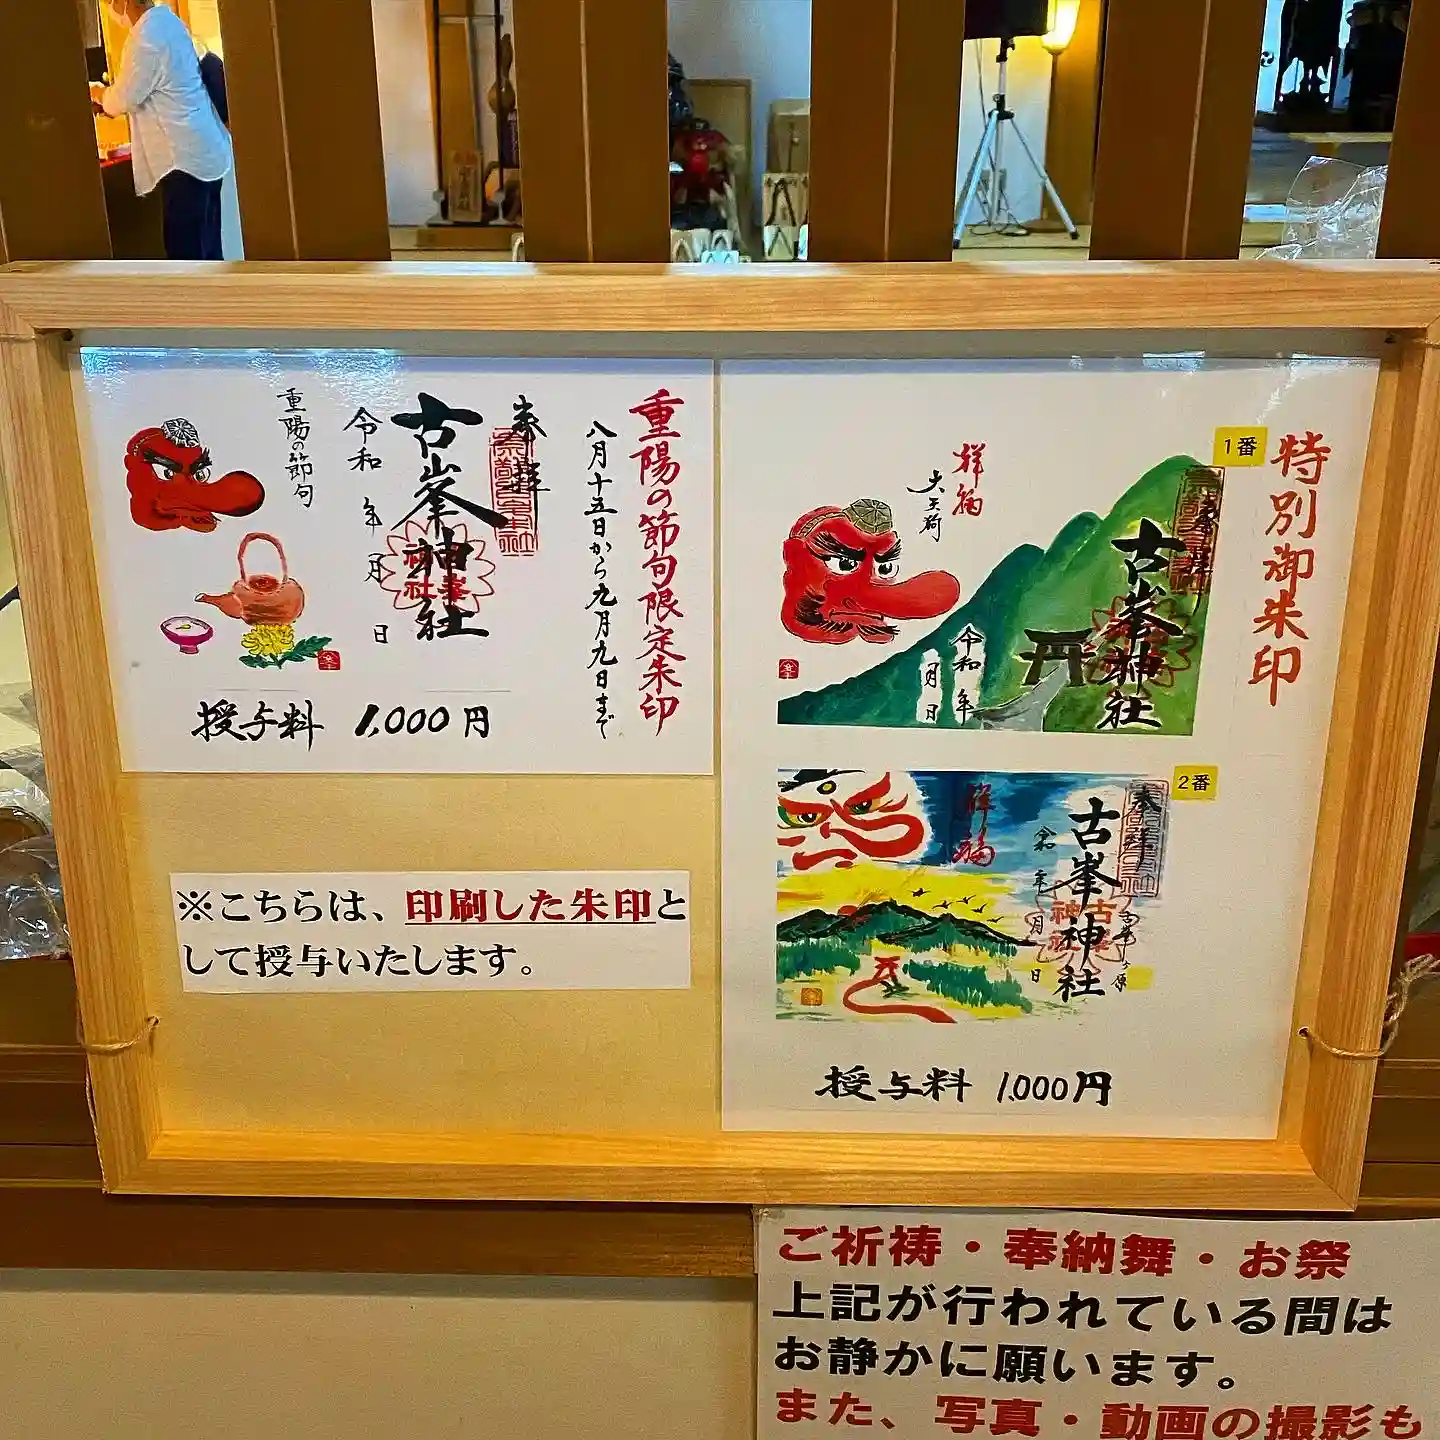 重陽の節句限定朱印
八月十五日から九月九日まで
奉拝
古峯神社
令和 年 月 日
重陽の節句
授与料 1,000円
※こちらは、印刷した朱印と
して授与いたします。
特別御朱印
1番
奉拝
古峯神社
祥福
大天狗
令和 年
月 日
2番
奉拝
古峯神社
古峯ヶ原
祥福
令和 年 月 日
授与料 1,000円
ご祈祷・奉納舞・お祭
上記が行われている間は
お静かに願います。
また、写真・動画の撮影も